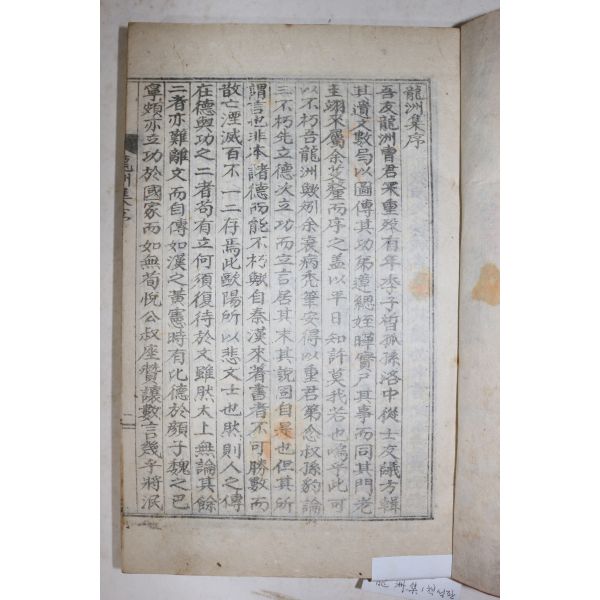 龍洲集序
吾友龍洲曺君采重歿有年季子晳孤孫洛中從士友議方輯
其遺文數局以圖傳其功弟遠緦姪暉實尸其事而同其門老
圭翊來屬余芟釐而序之盖以平日知許莫我若也嗚乎此可
以不朽吾龍洲歟矧余衰病禿筆安得以重君第念叔孫豹論
三不朽先立德次立功而立言居其末其說固自是也但其所
謂言也非本諸德而能不朽歟自秦漢來著書者不可勝數而
散亡湮滅百不一二存焉此歐陽所以悲文士也然則人之傳
在德與功之二者苟有立何須復待於文雖然太上無論其餘
二者亦難離文而自傳如漢之黃憲時有比德於顔子魏之巴
寧頗亦立功於國家而如無荀悅公叔座贊讓數言幾乎將泯
龍洲集序
一
龍洲集